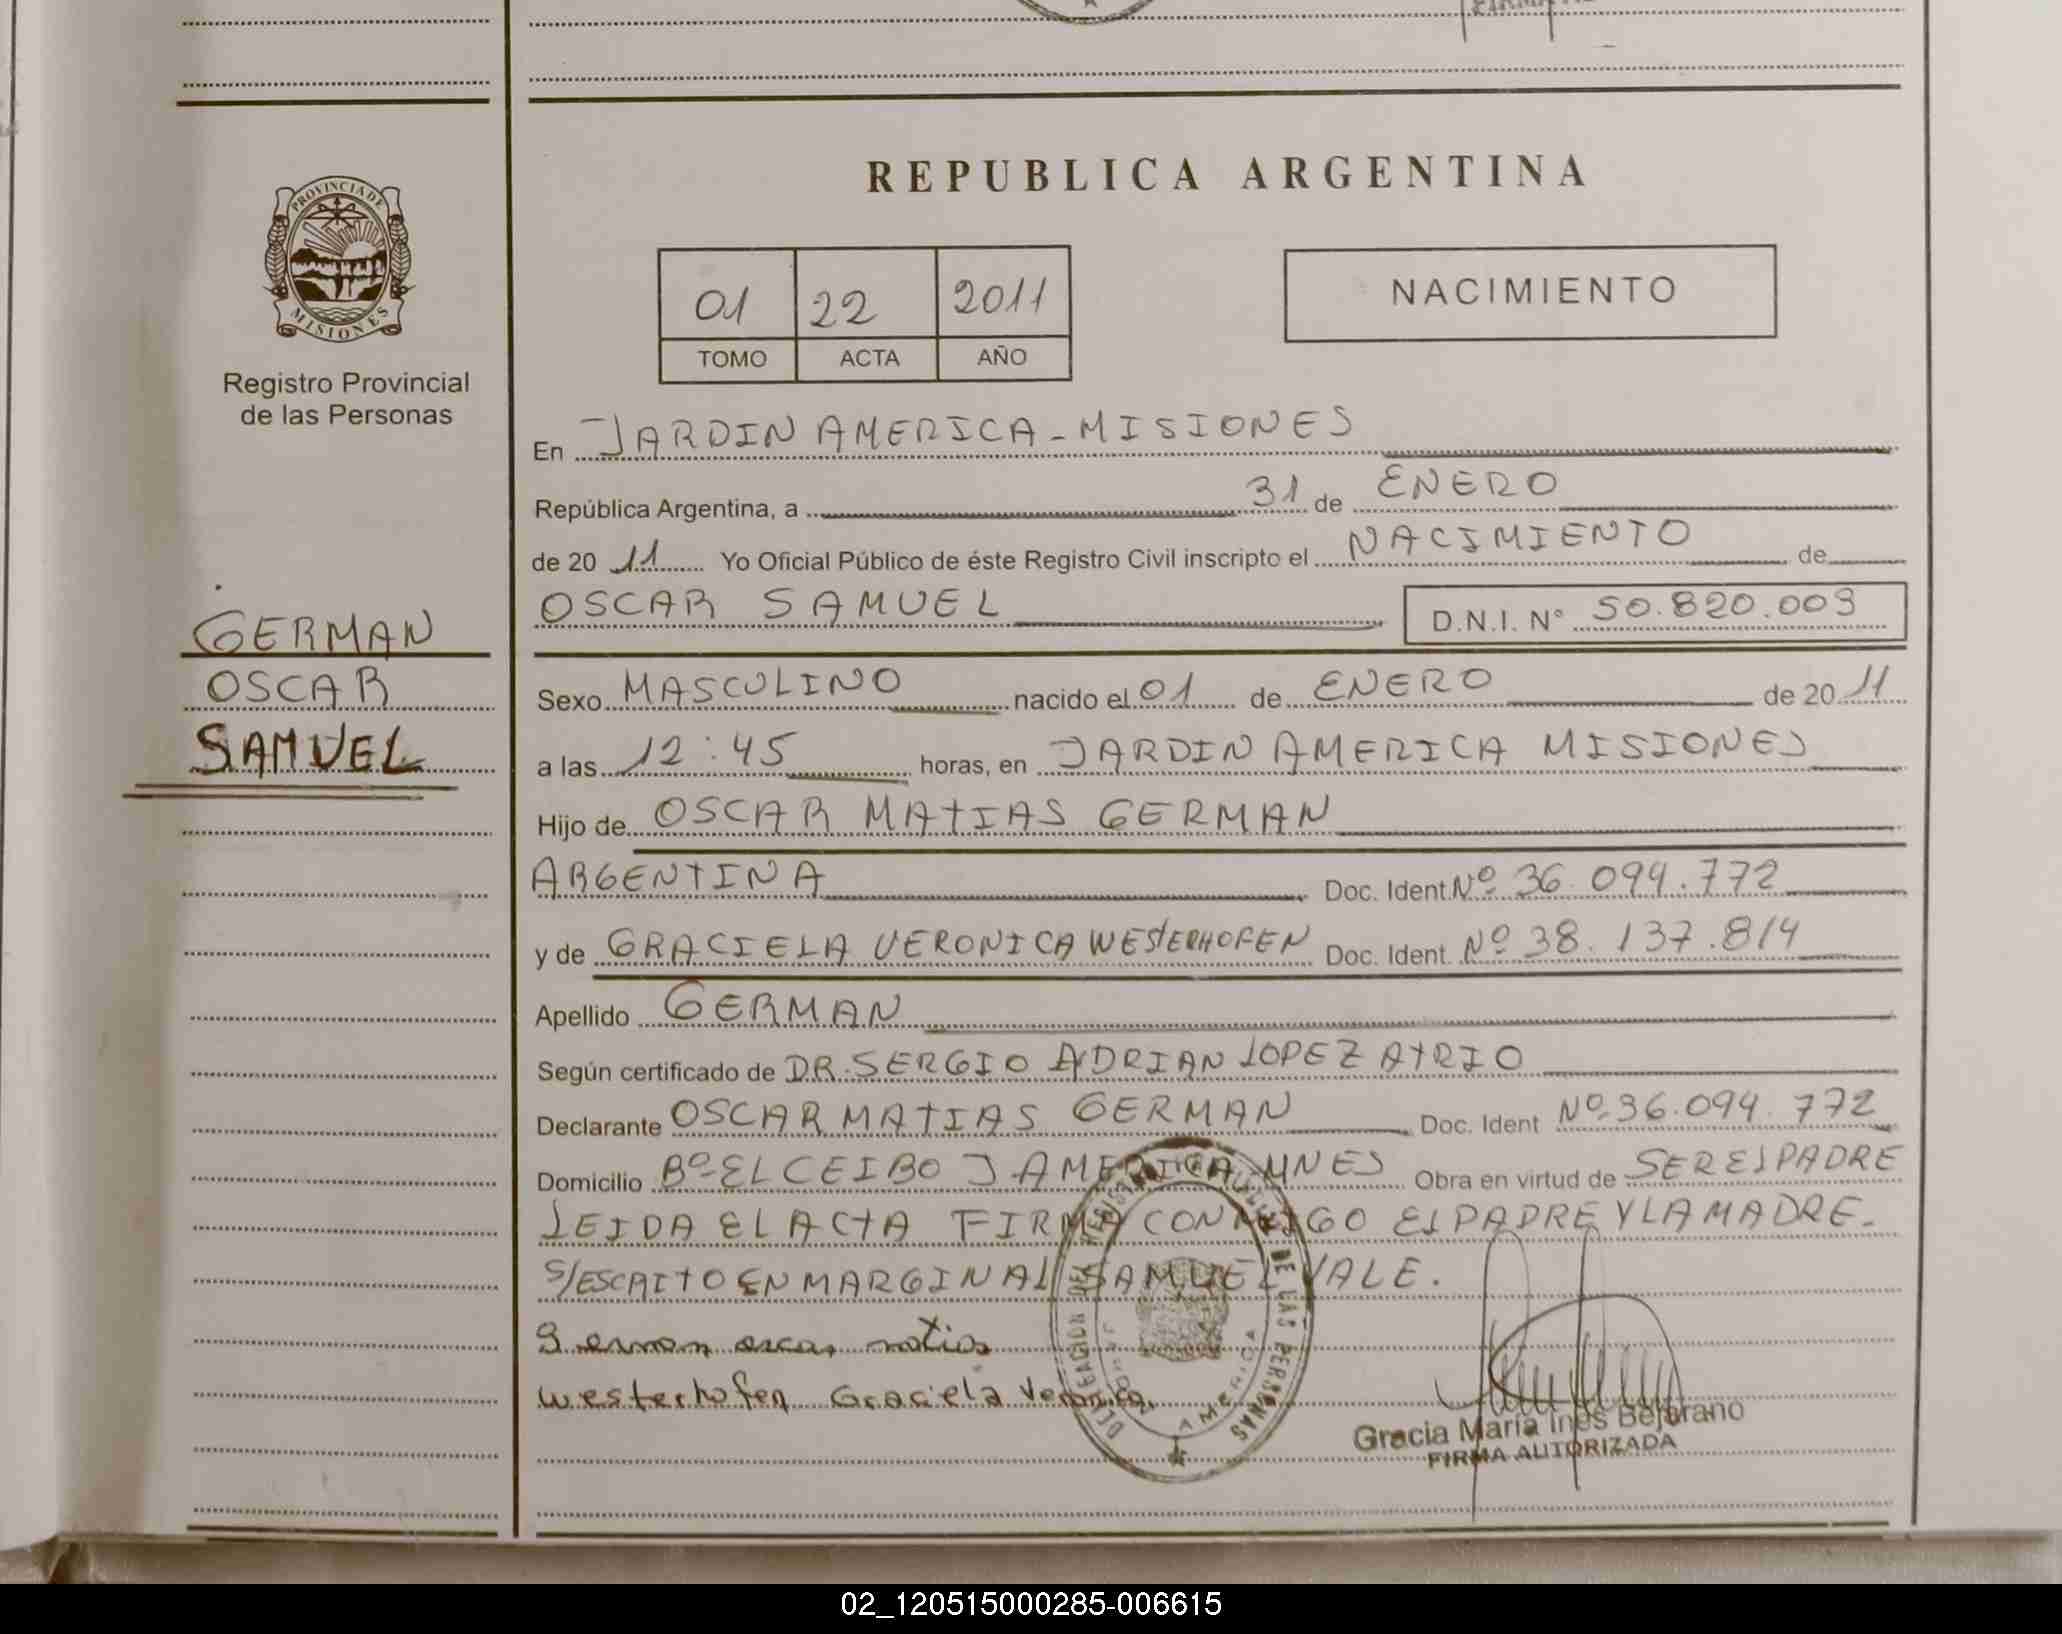 REPUBLICA ARGENTINA
PROVINCIA DE
MISIONES
Registro Provincial
de las Personas
01 22 2011
TOMO ACTA AÑO
NACIMIENTO
En JARDIN AMERICA - MISIONES
República Argentina, a 31 de ENERO
de 20 11 Yo Oficial Público de éste Registro Civil inscripto el NACIMIENTO de
OSCAR SAMUEL D.N.I. N° 50.820.003
GERMAN
OSCAR
SAMUEL
Sexo MASCULINO nacido el 01 de ENERO de 20 11
a las 12:45 horas, en JARDIN AMERICA MISIONES
Hijo de OSCAR MATIAS GERMAN
ARGENTINA Doc. Ident. Nº 36.094.772
y de GRACIELA VERONICA WESTERHOFEN Doc. Ident. Nº 38.137.814
Apellido GERMAN
Según certificado de DR. SERGIO ADRIAN LOPEZ ATRIO
Declarante OSCAR MATIAS GERMAN Doc. Ident Nº 36.094.772
Domicilio Bº EL CEIBO J. AMERICA MNES Obra en virtud de SER EL PADRE
LEIDA EL ACTA FIRMA CONMIGO EL PADRE Y LA MADRE.
S/ESCRITO EN MARGINAL SAMUEL VALE.
German oscar matias
Westerhofen Graciela Veronica
DELEGACION DEL REGISTRO DE LAS PERSONAS
AMERICA
Gracia María Inés Bejarano
FIRMA AUTORIZADA
02_120515000285-006615